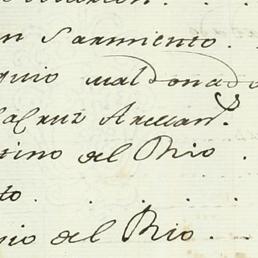 n Sarmiento.
quio Maldonado
laCruz Arellan.
tino del Rio .
to. . . .
io del Rio. .